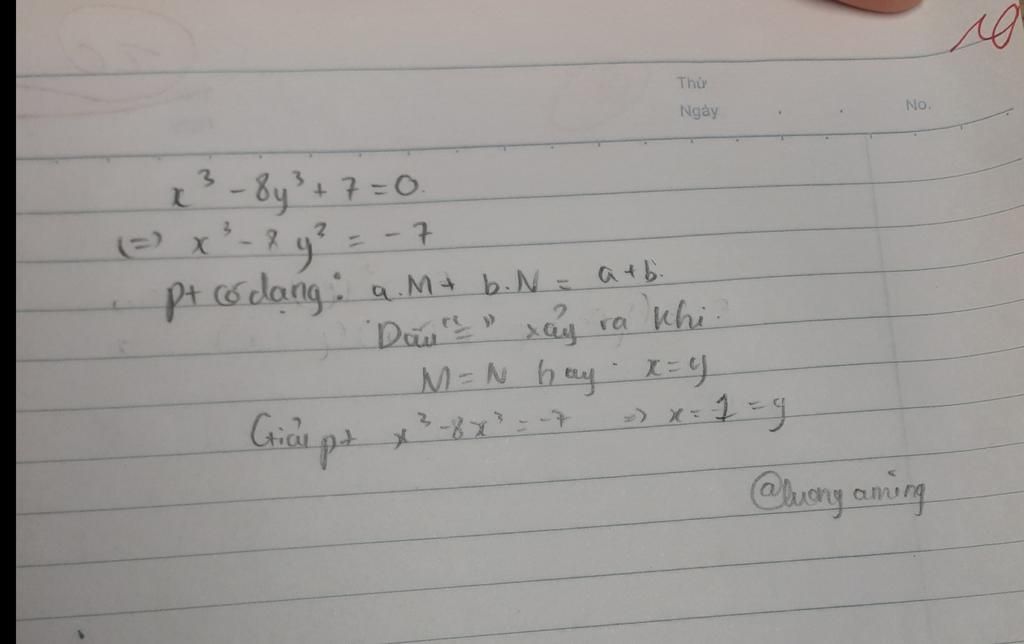 10
Thứ
Ngày . . No.
x³ - 8y³ + 7 = 0.
(=) x³ - 8 y³ = - 7
pt có dạng : a.M + b.N = a + b.
Dấu "=" xảy ra khi.
M = N hay x = y
Giải pt x³ - 8x³ = -7 => x = 1 = y
@luong aming